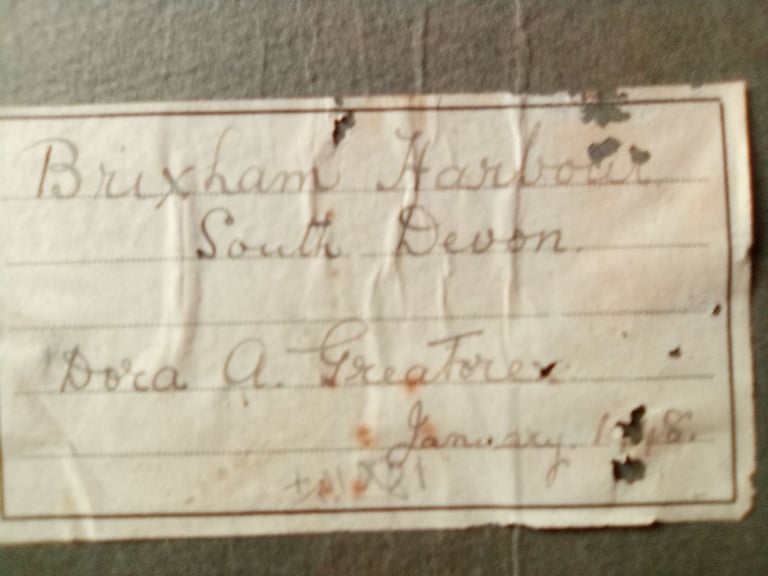 Brixham Harbour.
South Devon.
Dora A. Greatorex
January.